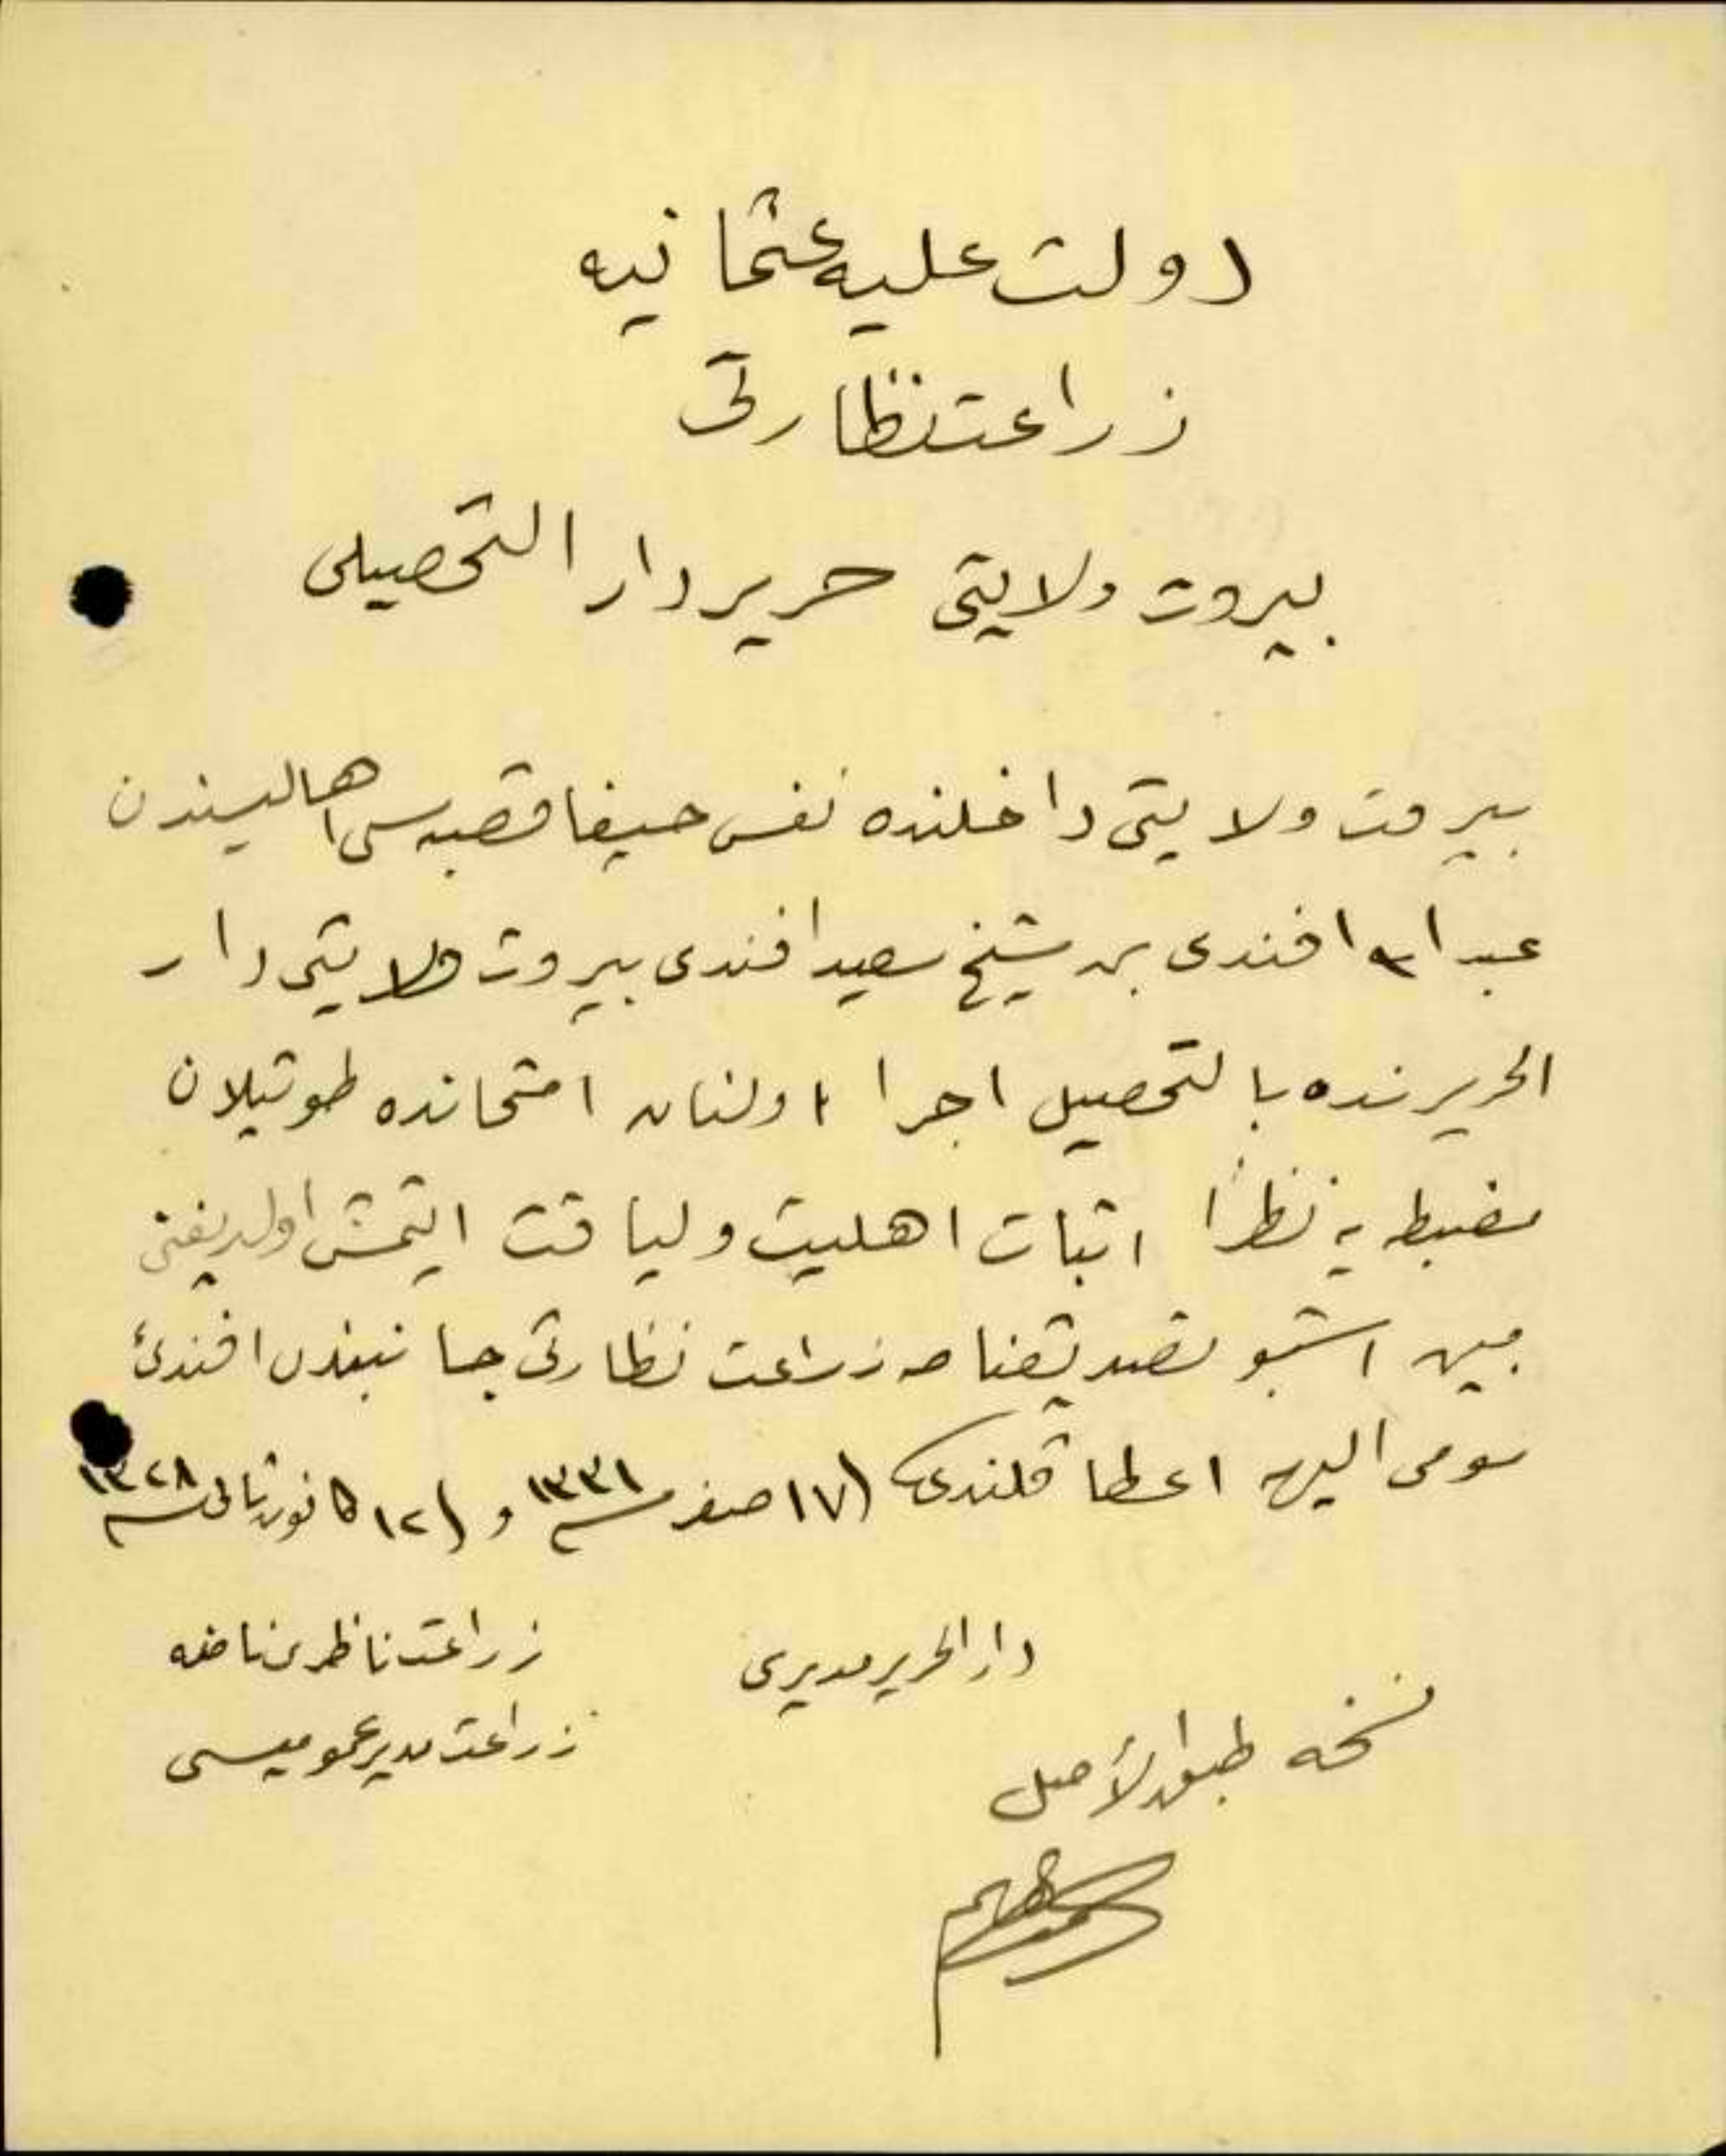 دولت عليه عثمانيه
زراعت نظارتى
بيروت ولايتى حرير دار التحصيلى
بيروت ولايتى داخلنده نفس حيفا قصبه سى اهاليسندن
عبد الله افندى بن شيخ سعيد افندى بيروت ولايتى دار
الحريرنده بالتحصيل اجرا اولنان امتحانده طوتيلان
مضبطه يه نظراً اثبات اهليت ولياقت ايتمش اولديغنى
مبين اشبو تصديقنامه زراعت نظارتى جانبندن افندئ
مومى اليه اعطا قلندى (١٧ صفر سنه ١٣٣١ و (١٢ كانون ثانى سنه ١٣٢٨
دار الحرير مديرى
زراعت ناظرى نامنه
زراعت مدير عموميسى
نسخه طبق الأصل